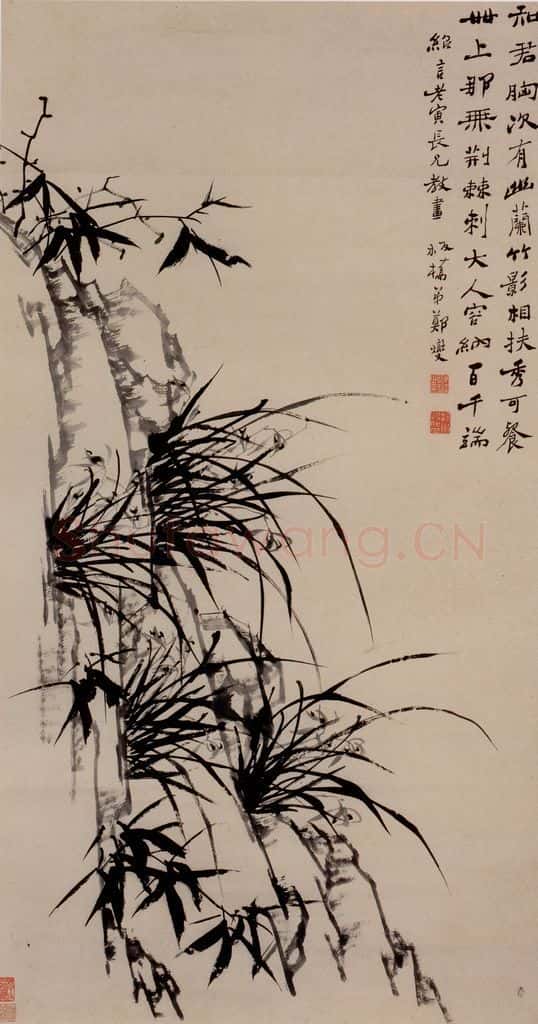 知君胸次有幽蘭竹影相扶秀可餐
世上那無荊棘刺大人容納百千端
紹言老寅長兄教畫 板橋弟鄭燮
shufawang.CN